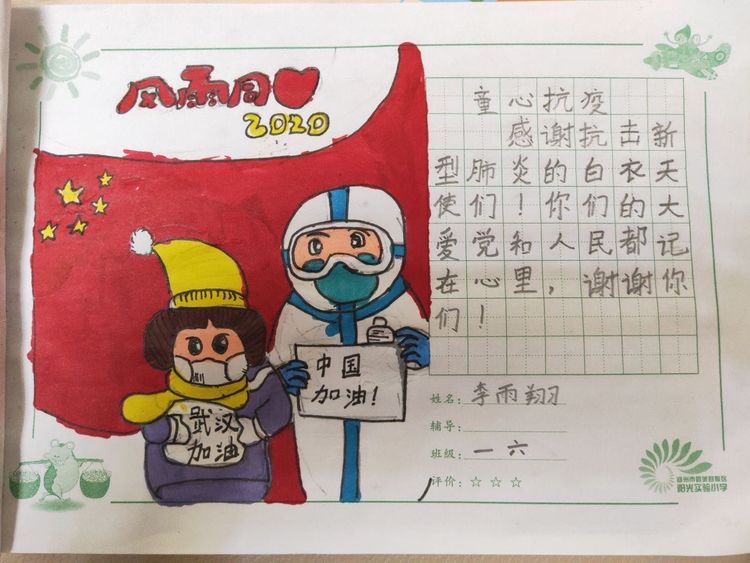 风雨同
2020
童心抗疫
感谢抗击新
型肺炎的白衣天
使们！你们的大
爱党和人民都记
在心里，谢谢你
们！
中国
加油！
武汉
加油
姓名：李雨翔
辅导：
班级：一六
评价：☆☆☆
阳光实验小学